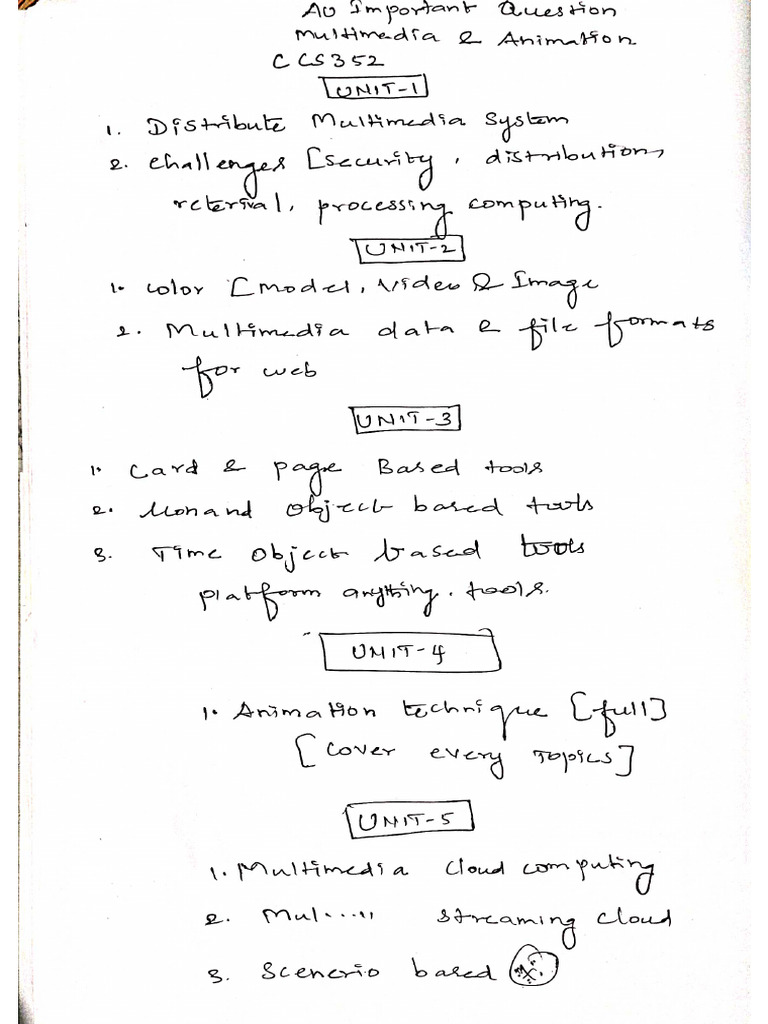 AU Important Question
Multimedia & Animation
CCS352
UNIT-1
1. Distribute Multimedia System
2. challenges [security, distribution,
reterival, processing computing.
UNIT-2
1. color [Model, Video & Image
2. Multimedia data & file formats
for web
UNIT-3
1. Card & page Based tools
2. object based tools
3. Time object based tools
platform anything. tools.
UNIT-4
1. Animation technique [full]
[cover every Topics]
UNIT-5
1. Multimedia cloud computing
2. Mul..... streaming cloud
3. Scenerio based